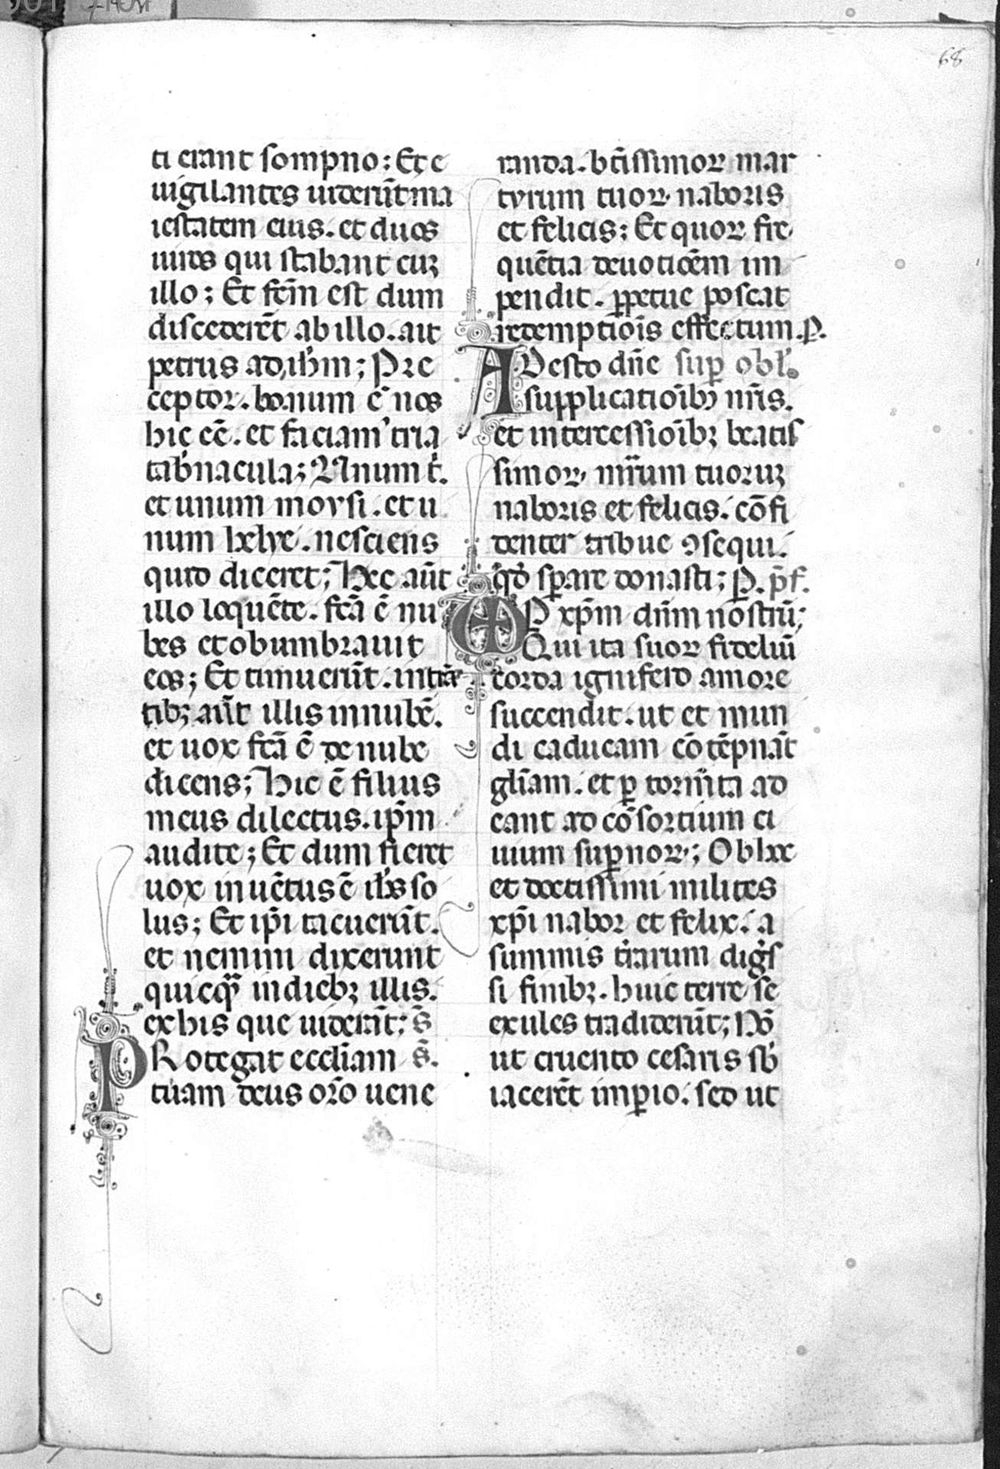 68
ti erant sompno: Et e
uigilantes uiderūt ma
iestatem eius. et duos
uiros qui stabant cuȝ
illo; Et fc̄m est dum
discederēt ab illo. ait
petrus ad ih̄m; Pre
ceptor. bonum ē nos
hic eē. et faciam' tria
tab̄nacula; Unum t̄.
et unum moysi. et u
num helye. nesciens
quid diceret; Hec aūt
illo loquēte. fc̄a ē nu
bes et obumbrauit
eos; Et timuerūt. intrā
tibȝ aūt illis in nubē.
et uox fc̄a ē de nube
dicens; Hic ē filius
meus dilectus. ip̄m
audite; Et dum fieret
uox inuētus ē ih̄s so
lus; Et ip̄i tacuerūt.
et nemini dixerunt
quicq̄ȝ in diebȝ illis.
ex his que uiderāt; s̄
PRotegat eccl̄iam s̄.
tuam deus or̄o uene
randa. btīssimoꝝ mar
tyrum tuoꝝ. naboris
et felicis: Et quoꝝ fre
quētia deuotioēm im
pendit. ꝑpetue poscat
redemptiōis effectum. P.
ADesto dn̄e suꝑ obl̄.
supplicatiōibȝ nr̄is.
et intercessiōibȝ beatis
simoꝝ. mr̄um tuoruȝ
naboris et felicis. cōfi
denter tribue ꝯsequi.
qd̄ sꝑare donasti; P. p̄f.
P xp̄m dn̄m nostrū;
Qui ita suoꝝ fideliū
corda ignifero amore
succendit. ut et mun
di caducam cōtēpnāt
gl̄iam. et ꝑ torm̄ta ad
eant ad cōsortium ci
uium suꝑnoꝝ; Oblate
et doctissimi milites
xp̄i nabor et felix. a
summis t̄rarum digs̄
si finibȝ. huic terre se
exules tradiderūt; Nō
ut cruento cesaris sb̄
iacerēt imꝑio. sed ut